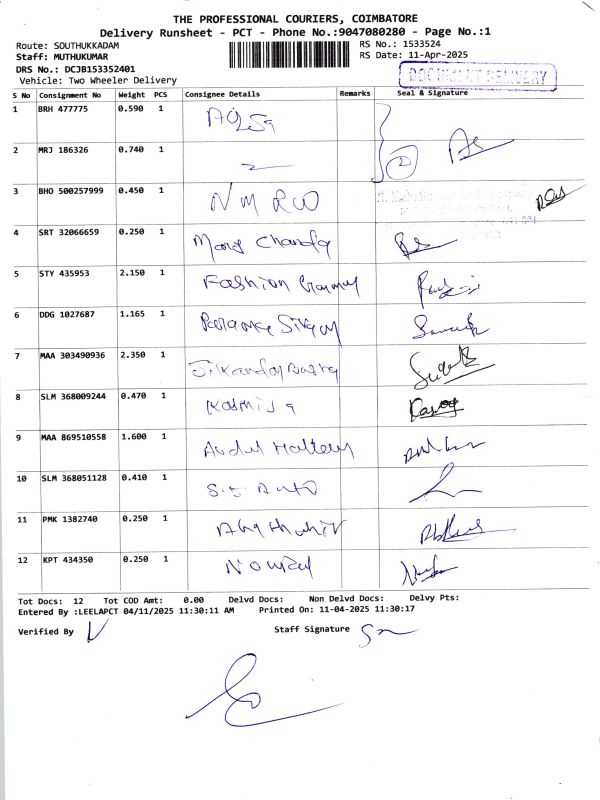 THE PROFESSIONAL COURIERS, COIMBATORE
Delivery Runsheet - PCT - Phone No.:9047080280 - Page No.:1
Route: SOUTHUKKADAM
RS No.: 1533524
Staff: MUTHUKUMAR
RS Date: 11-Apr-2025
DRS No.: DCJB153352401
Vehicle: Two Wheeler Delivery
DOCUMENT DELIVERY
S No Consignment No Weight PCS Consignee Details Remarks Seal & Signature
1 BRH 477775 0.590 1
2 MRJ 186326 0.740 1
3 BHO 500257999 0.450 1 NMRW
4 SRT 32066659 0.250 1
5 STY 435953 2.150 1 Fashion
6 DDG 1027687 1.165 1
7 MAA 303490936 2.350 1
8 SLM 368009244 0.470 1
9 MAA 869510558 1.600 1 Abdul
10 SLM 368051128 0.410 1 S.S Auto
11 PMK 1382740 0.250 1
12 KPT 434350 0.250 1
Tot Docs: 12 Tot COD Amt: 0.00 Delvd Docs: Non Delvd Docs: Delvy Pts:
Entered By :LEELAPCT 04/11/2025 11:30:11 AM Printed On: 11-04-2025 11:30:17
Verified By Staff Signature